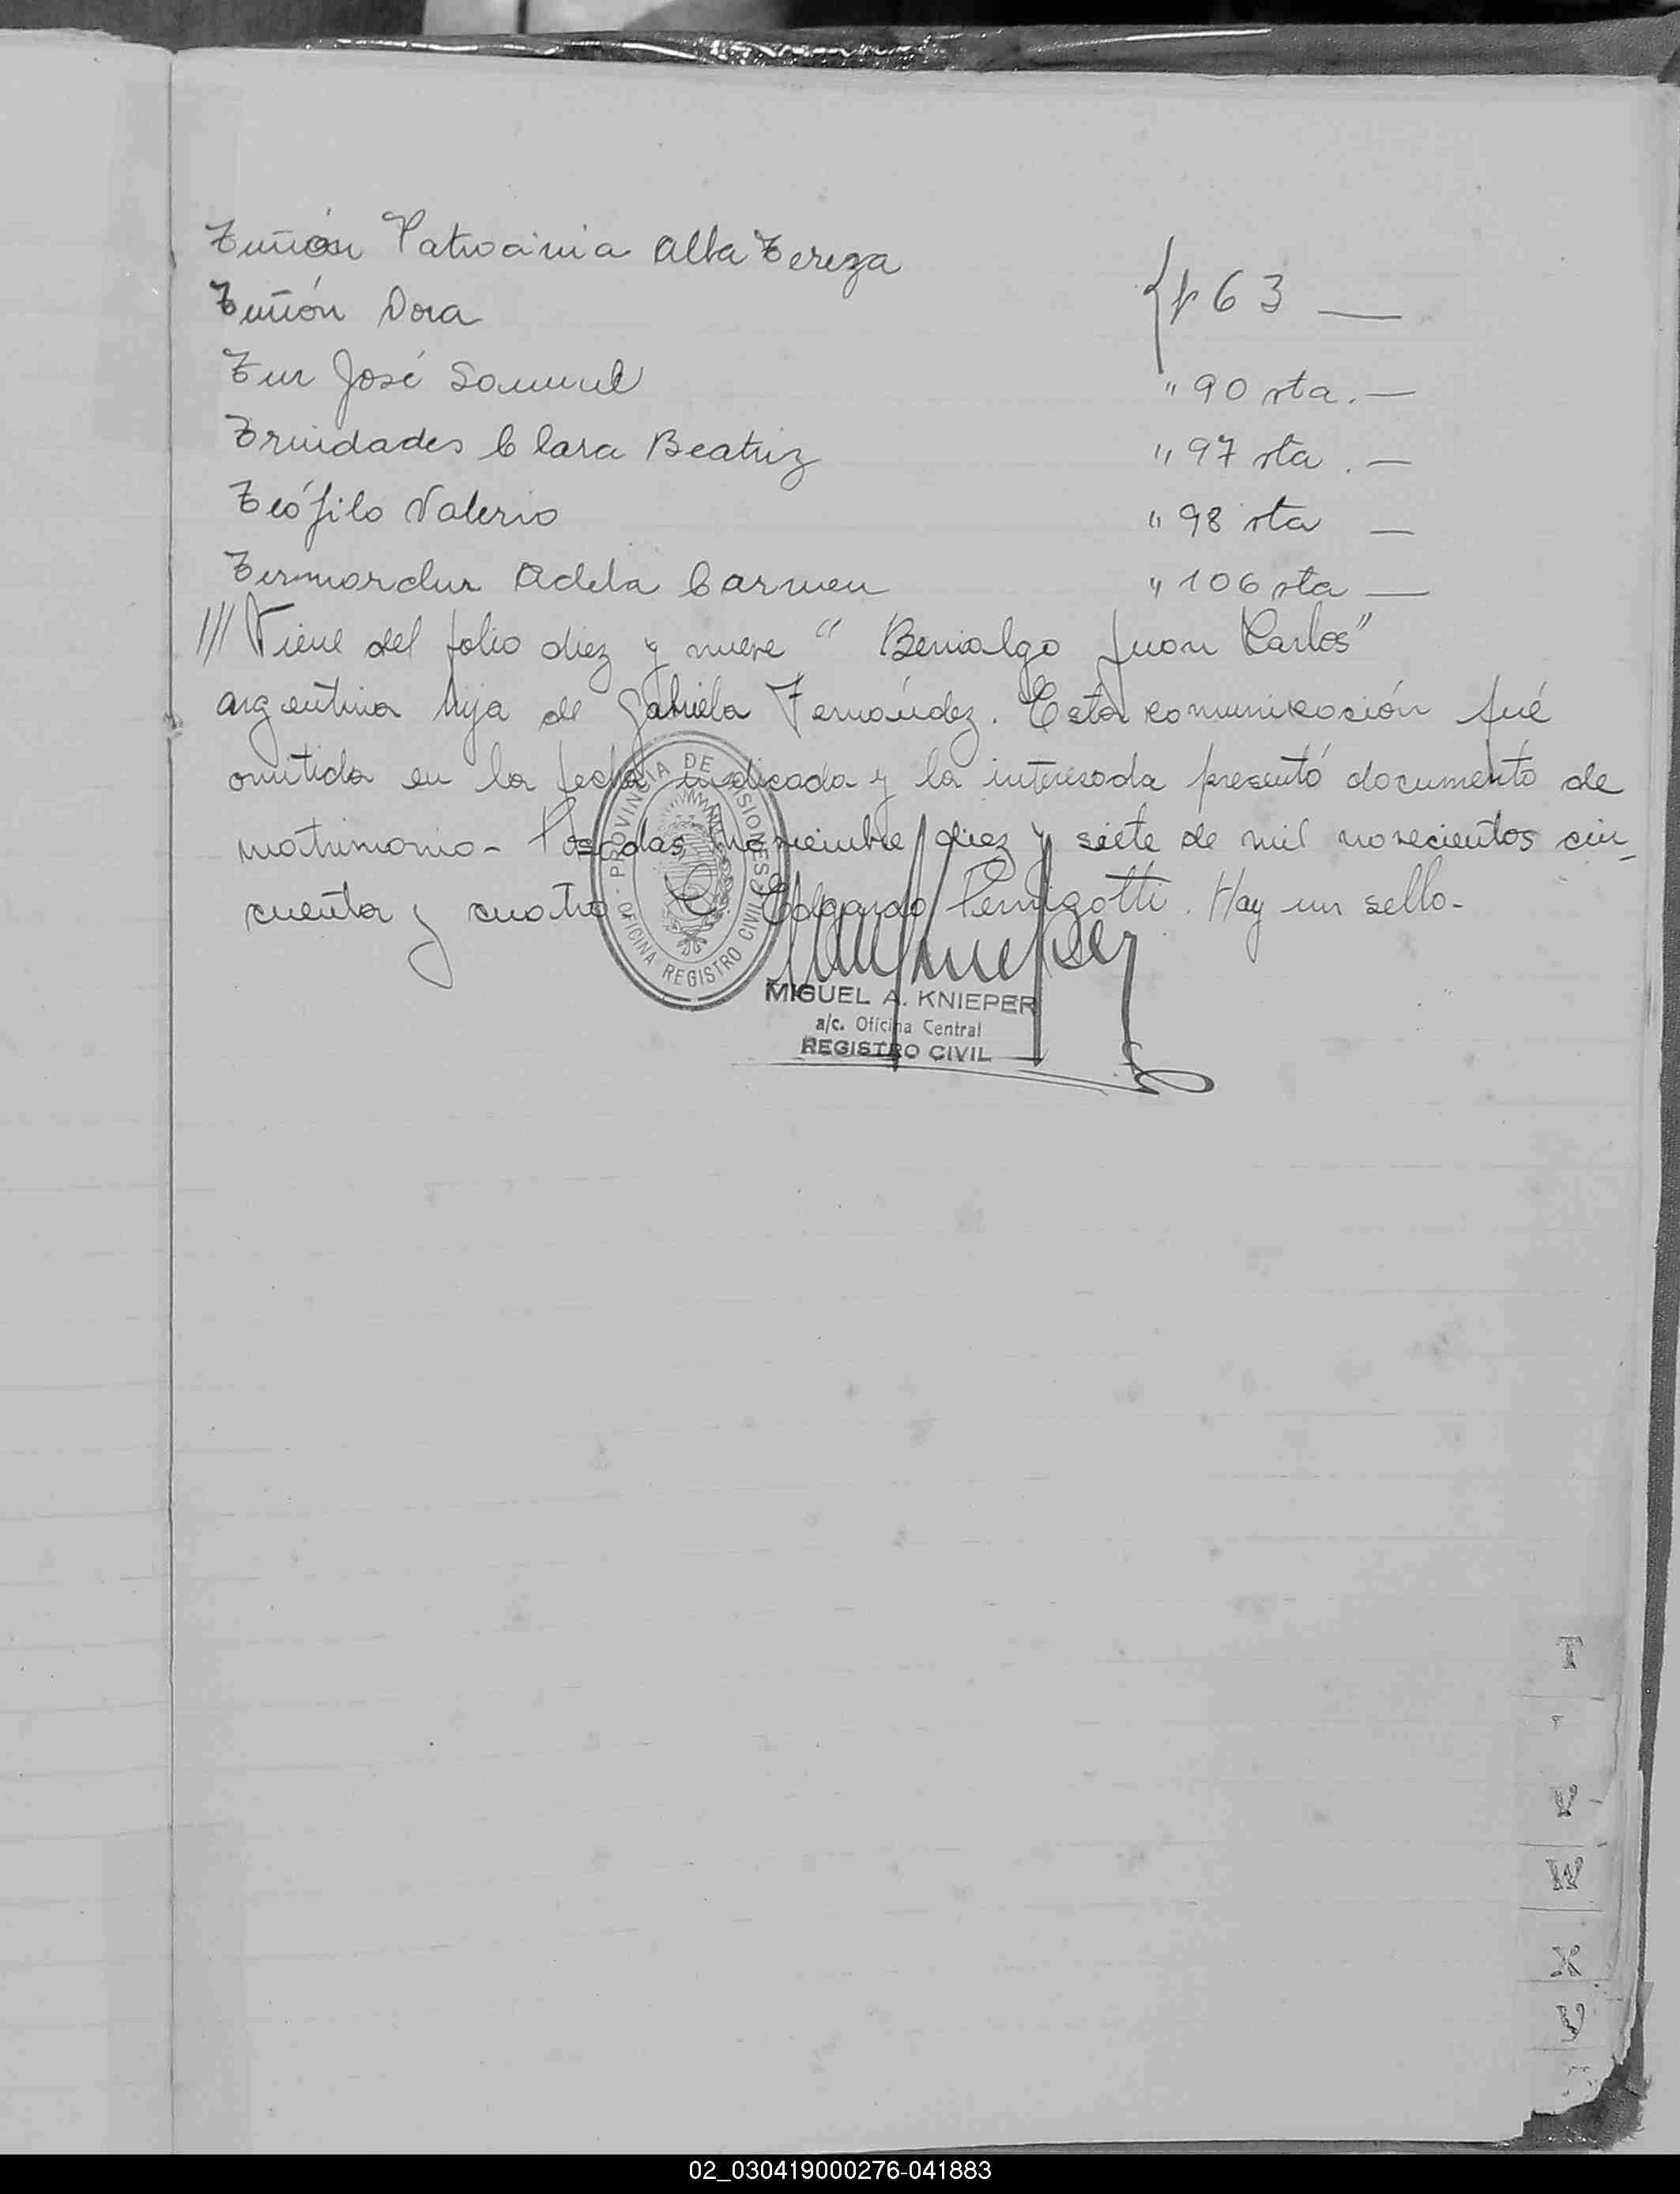 Tuñón Patrocinia Alba Tereza
Tuñón Dora
{ f 63 —
Tur José Samuel " 90 vta. —
Trindades Clara Beatriz " 97 vta. —
Teófilo Valerio " 98 vta —
Adela Carmen " 106 vta —
/// Viene del folio diez y nueve " Benialgo Juan Carlos"
argentina hija de Gabriela Fernández. Esta comunicación fué
omitida en la fecha indicada y la interesada presentó documento de
matrimonio - Posadas, noviembre diez y siete de mil novecientos cin-
cuenta y cuatro Edgardo Pernigotti. Hay un sello.-
PROVINCIA DE MISIONES
OFICINA REGISTRO CIVIL
MIGUEL A. KNIEPER
a/c. Oficina Central
REGISTRO CIVIL
T
V
W
X
02_030419000276-041883